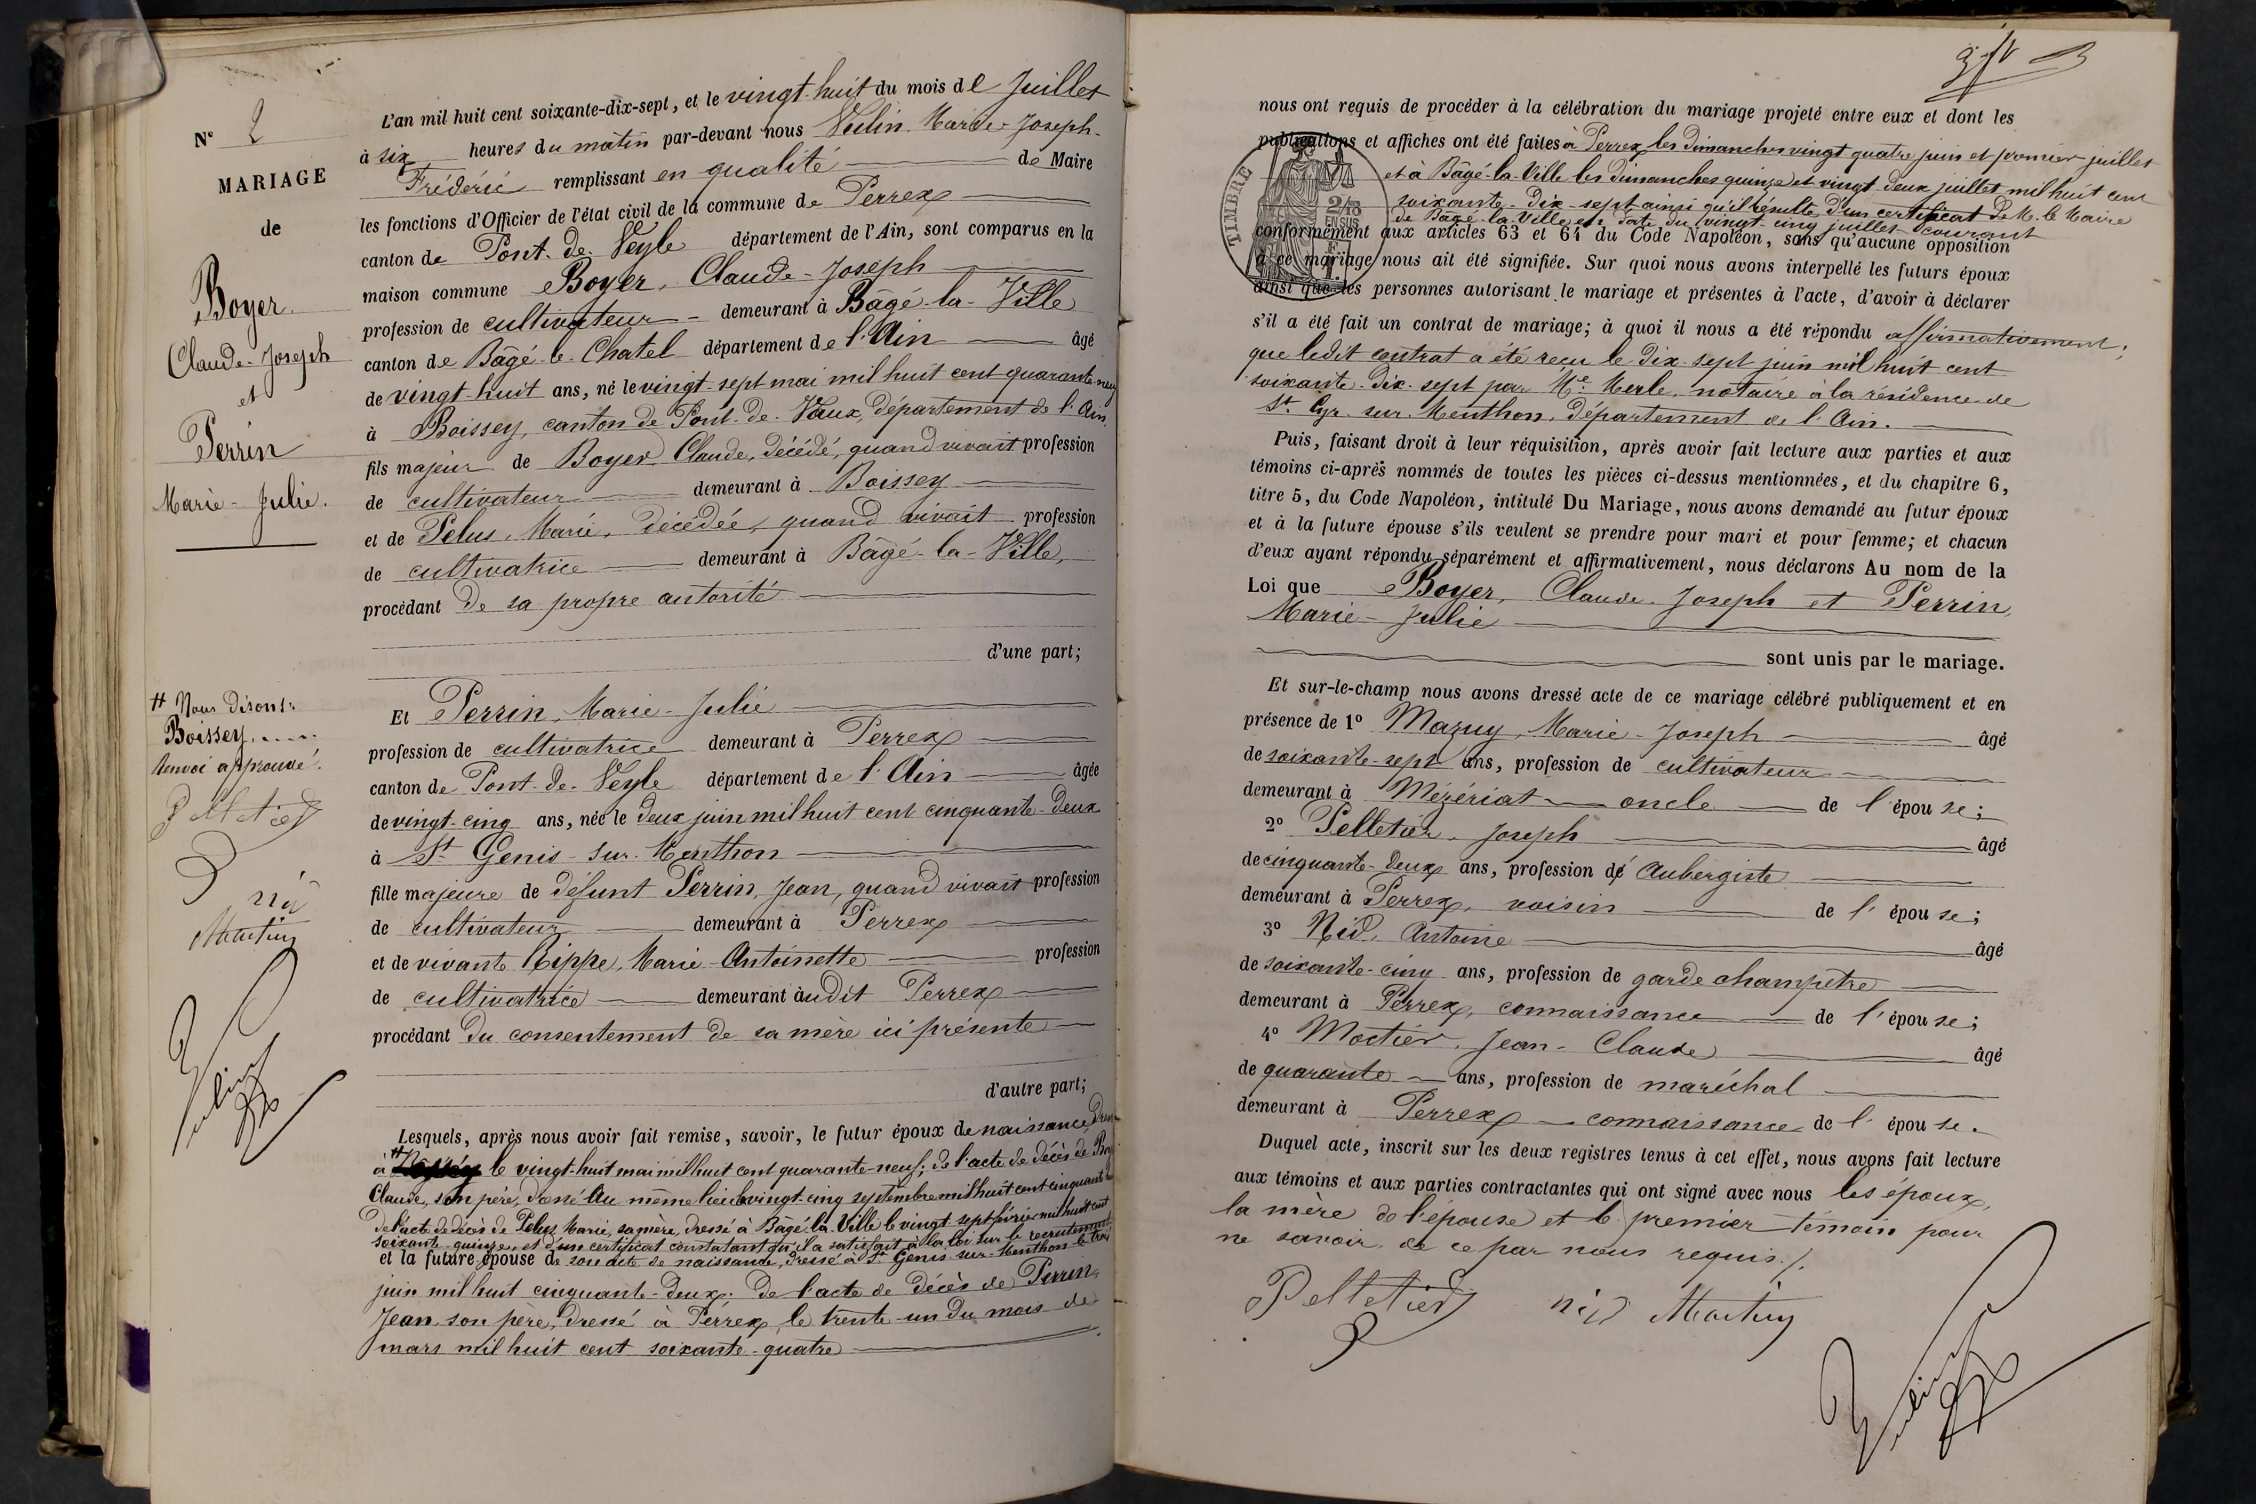 N° 2
MARIAGE
de
Boyer
Claude-Joseph
et
Perrin
Marie-Julie.
# Nous disons:
Boissey.....
Renvoi approuvé.
Pelletier
nid
Martin
Vulin
L'an mil huit cent soixante-dix-sept, et le vingt-huit du mois de Juillet
à six heures du matin par-devant nous Vulin Marie-Joseph-
Frédéric remplissant en qualité de Maire
les fonctions d'Officier de l'état civil de la commune de Perrex
canton de Pont-de-Veyle département de l'Ain, sont comparus en la
maison commune Boyer, Claude-Joseph
profession de cultivateur demeurant à Bâgé-la-Ville
canton de Bâgé-le-Chatel département de l'Ain âgé
de vingt-huit ans, né le vingt-sept mai mil huit cent quarante-neuf
à Boissey, canton de Pont-de-Vaux, département de l'Ain,
fils majeur de Boyer Claude, décédé, quand vivait profession
de cultivateur demeurant à Boissey
et de Pelus, Marie, décédée, quand vivait profession
de cultivatrice demeurant à Bâgé-la-Ville,
procédant de sa propre autorité
d'une part;
Et Perrin, Marie-Julie
profession de cultivatrice demeurant à Perrex
canton de Pont-de-Veyle département de l'Ain âgée
de vingt-cinq ans, née le deux juin mil huit cent cinquante-deux
à St Genis-sur-Menthon
fille majeure de défunt Perrin, Jean, quand vivait profession
de cultivateur demeurant à Perrex
et de vivante Rippe, Marie-Antoinette profession
de cultivatrice demeurant audit Perrex
procédant du consentement de sa mère ici présente
d'autre part;
Lesquels, après nous avoir fait remise, savoir, le futur époux de naissance, dressé
à # le vingt-huit mai mil huit cent quarante-neuf; de l'acte de décès de Boyer
Claude, son père, dressé au même lieu le vingt-cinq septembre mil huit cent cinquante
de l'acte de décès de Pelus, Marie, sa mère, dressé à Bâgé-la-Ville le vingt-sept février mil huit cent
soixante-quinze, et d'un certificat constatant qu'il a satisfait à la loi sur le recrutement
et la future épouse de son acte de naissance, dressé à St Genis-sur-Menthon le trois
juin mil huit cinquante-deux. De l'acte de décès de Perrin
Jean, son père, dressé à Perrex, le trente-un du mois de
mars mil huit cent soixante-quatre
nous ont requis de procéder à la célébration du mariage projeté entre eux et dont les
publications et affiches ont été faites à Perrex les Dimanches vingt quatre juin et premier juillet
et à Bâgé-la-Ville les Dimanches quinze et vingt-deux juillet mil huit cent
soixante-Dix-sept ainsi qu'il résulte d'un certificat de M. le Maire
de Bâgé-la-Ville en date du vingt-cinq juillet courant
conformément aux articles 63 et 64 du Code Napoléon, sans qu'aucune opposition
à ce mariage nous ait été signifiée. Sur quoi nous avons interpellé les futurs époux
ainsi que les personnes autorisant le mariage et présentes à l'acte, d'avoir à déclarer
s'il a été fait un contrat de mariage; à quoi il nous a été répondu affirmativement;
que ledit contrat a été reçu le dix-sept juin mil huit cent
soixante-dix-sept par Me Merle, notaire à la résidence de
St Cyr-sur-Menthon, département de l'Ain.
Puis, faisant droit à leur réquisition, après avoir fait lecture aux parties et aux
témoins ci-après nommés de toutes les pièces ci-dessus mentionnées, et du chapitre 6,
titre 5, du Code Napoléon, intitulé Du Mariage, nous avons demandé au futur époux
et à la future épouse s'ils veulent se prendre pour mari et pour femme; et chacun
d'eux ayant répondu séparément et affirmativement, nous déclarons Au nom de la
Loi que Boyer, Claude-Joseph et Perrin,
Marie-Julie
sont unis par le mariage.
Et sur-le-champ nous avons dressé acte de ce mariage célébré publiquement et en
présence de 1° Mazuy, Marie-Joseph âgé
de soixante-sept ans, profession de cultivateur
demeurant à Mézériat oncle de l'épouse;
2° Pelletier, Joseph âgé
de cinquante-deux ans, profession de Aubergiste
demeurant à Perrex, voisin de l'épouse;
3° Nid, Antoine âgé
de soixante-cinq ans, profession de garde champêtre
demeurant à Perrex, connaissance de l'épouse;
4° Moctier, Jean-Claude âgé
de quarante ans, profession de maréchal
demeurant à Perrex connaissance de l'épouse.
Duquel acte, inscrit sur les deux registres tenus à cet effet, nous avons fait lecture
aux témoins et aux parties contractantes qui ont signé avec nous les époux,
la mère de l'épouse et le premier témoin pour
ne savoir de ce par nous requis./.
Pelletier nid
Vulin
TIMBRE